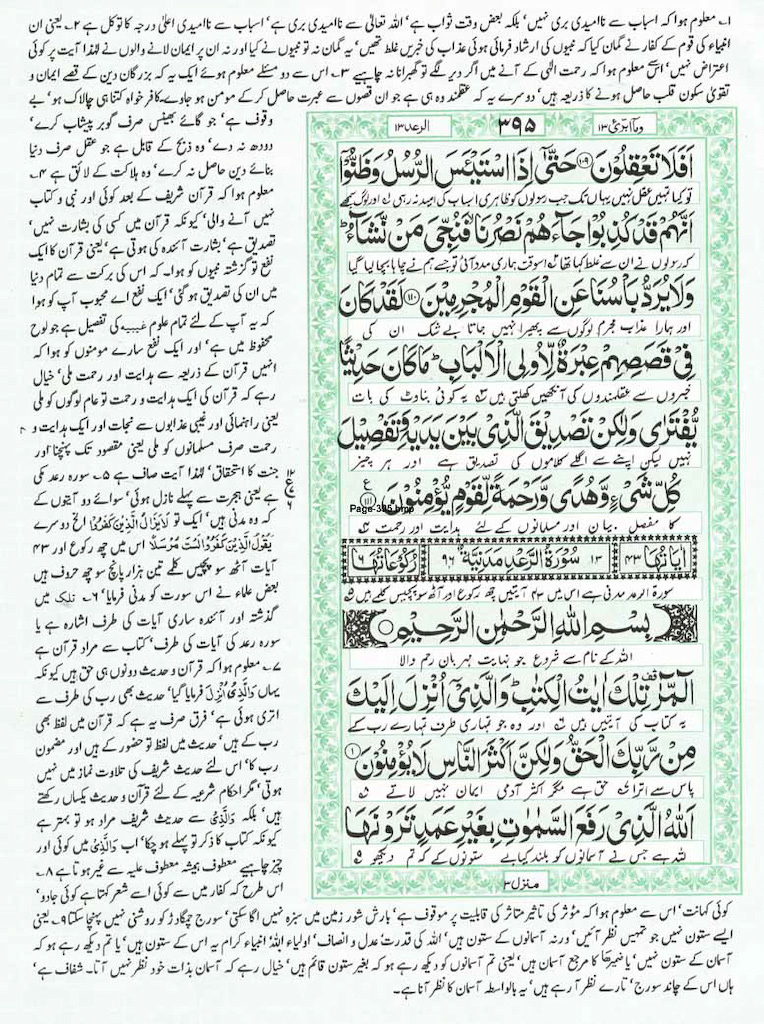 ۱۔ معلوم ہوا کہ اسباب سے ناامیدی بری نہیں، بلکہ بعض وقت ثواب ہے، اللہ تعالیٰ سے ناامیدی بری ہے، اسباب سے ناامیدی اعلیٰ درجہ کا توکل ہے ۲۔ یعنی ان
انبیاء کی قوم کے کفار نے گمان کیا کہ نبیوں کی ارشاد فرمائی ہوئی عذاب کی خبریں غلط تھیں، یہ گمان نہ تو نبیوں نے کیا اور نہ ان پر ایمان لانے والوں نے لہٰذا آیت پر کوئی
اعتراض نہیں، اس سے معلوم ہوا کہ رحمت الٰہی کے آنے میں اگر دیر لگے تو گھبرانا نہ چاہیے ۳۔ اس سے دو مسئلے معلوم ہوئے ایک یہ کہ بزرگان دین کے قصے ایمان و
تقویٰ سکون قلب حاصل ہونے کا ذریعہ ہیں، دوسرے یہ کہ عقلمند وہ ہی ہے جو ان قصوں سے عبرت حاصل کر کے مومن ہو جاوے۔ کافر خواہ کتنا ہی چالاک ہو، بے
وقوف ہے، جو گائے بھینس صرف گوبر پیشاب کرے،
دودھ نہ دے، وہ ذبح کے قابل ہے جو عقل صرف دنیا
بنائے دین حاصل نہ کرے، وہ ہلاکت کے لائق ہے ۴۔
معلوم ہوا کہ قرآن شریف کے بعد کوئی اور نبی و کتاب
نہیں آنے والی، کیونکہ قرآن میں کسی کی بشارت نہیں،
تصدیق ہے، بشارت آئندہ کی ہوتی ہے، یعنی قرآن کا ایک
نفع تو گزشتہ نبیوں کو ہوا۔ کہ اس کی برکت سے تمام دنیا
میں ان کی تصدیق ہو گئی، ایک نفع اے محبوب آپ کو ہوا
کہ یہ آپ کے لئے تمام علوم غیبیہ کی تفصیل ہے جو لوح
محفوظ میں ہے، اور ایک نفع سارے مومنوں کو ہوا کہ
انہیں قرآن کے ذریعہ سے ہدایت اور رحمت ملی، خیال
رہے کہ قرآن کی ایک ہدایت و رحمت تو عام لوگوں کو ملی
یعنی راہنمائی اور غیبی عذابوں سے نجات اور ایک ہدایت و
رحمت صرف مسلمانوں کو ملی یعنی مقصود تک پہنچنا اور
جنت کا استحقاق، لہٰذا آیت صاف ہے ۵۔ سورہ رعد مکی
ہے یعنی ہجرت سے پہلے نازل ہوئی، سوائے دو آیتوں کے
کہ وہ مدنی ہیں، ایک تو لَا يَزَالُ الَّذِيْنَ كَفَرُوْا الخ دوسرے
يَقُوْلُ الَّذِيْنَ كَفَرُوْا لَسْتَ مُرْسَلًا اس میں چھ رکوع اور ۴۳
آیات آٹھ سو پچپن کلمے تین ہزار پانچ سو چھ حروف ہیں
بعض علماء نے اس سورت کو مدنی فرمایا، ۶۔ تلک میں
گذشتہ اور آئندہ ساری آیات کی طرف اشارہ ہے یا
سورہ رعد کی آیات کی طرف، کتاب سے مراد قرآن ہے
۷۔ معلوم ہوا کہ قرآن و حدیث دونوں ہی حق ہیں کیونکہ
یہاں وَالَّذِیْ اُنْزِلَ فرمایا گیا، حدیث بھی رب کی طرف سے
اتری ہوئی ہے، فرق صرف یہ ہے کہ قرآن میں لفظ بھی
رب کے ہیں، حدیث میں لفظ تو حضور کے ہیں اور مضمون
رب کا، اس لئے حدیث شریف کی تلاوت نماز میں نہیں
ہوتی، مگر احکام شرعیہ کے لئے قرآن و حدیث یکساں رکھتے
ہیں، بلکہ وَالَّذِیْ سے حدیث شریف مراد ہو تو بہتر ہے
کیونکہ کتاب کا ذکر تو پہلے ہو چکا، اب وَالَّذِیْ میں کوئی اور
چیز چاہیے معطوف ہمیشہ معطوف علیہ سے غیر ہوتا ہے ۸۔
اس طرح کہ کفار میں سے کوئی اسے شعر کہتا ہے کوئی جادو،
کوئی کہانت، اس سے معلوم ہوا کہ مؤثر کی تاثیر متاثر کی قابلیت پر موقوف ہے، بارش شور زمین میں سبزہ نہیں اگا سکتی، سورج چمگادڑ کو روشنی نہیں پہنچا سکتا ۹۔ یعنی
ایسے ستون نہیں جو تمہیں نظر آئیں، ورنہ آسمانوں کے ستون ہیں، اللہ کی قدرت، عدل و انصاف، اولیاء اللہ، انبیاء کرام یہ اس کے ستون ہیں، یا تم دیکھ رہے ہو کہ
آسمان کے ستون نہیں، یا ضمیر ھا کا مرجع آسمان ہیں، یعنی تم آسمانوں کو دیکھ رہے ہو کہ بغیر ستون قائم ہیں، خیال رہے کہ آسمان بذات خود نظر نہیں آتا۔ شفاف ہے،
ہاں اس کے چاند سورج، تارے نظر آ رہے ہیں، یہ بالواسطہ آسمان کا نظر آنا ہے۔
ومآ ابرئ ۱۳ ۳۹۵ الرعد ۱۳
اَفَلَا تَعْقِلُوْنَ ۝۱۰۹ حَتّٰٓى اِذَا اسْتَیْـَٔسَ الرُّسُلُ وَظَنُّوْٓا
تو کیا تمہیں عقل نہیں یہاں تک جب رسولوں کو ظاہری اسباب کی امید نہ رہی اور لوگ سمجھے
اَنَّهُمْ قَدْ كُذِبُوْا جَآءَهُمْ نَصْرُنَا فَنُجِّیَ مَنْ نَّشَآءُ ؕ
کہ رسولوں نے ان سے غلط کہا تھا اسوقت ہماری مدد آئی تو جسے ہم نے چاہا بچا لیا گیا
وَلَا یُرَدُّ بَاْسُنَا عَنِ الْقَوْمِ الْمُجْرِمِیْنَ ۝۱۱۰ لَقَدْ كَانَ
اور ہمارا عذاب مجرم لوگوں سے پھیرا نہیں جاتا بے شک ان کی
فِیْ قَصَصِهِمْ عِبْرَةٌ لِّاُولِی الْاَلْبَابِ ؕ مَا كَانَ حَدِیْثًا
خبروں سے عقلمندوں کی آنکھیں کھلتی ہیں یہ کوئی بناوٹ کی بات
یُّفْتَرٰى وَلٰكِنْ تَصْدِیْقَ الَّذِیْ بَیْنَ یَدَیْهِ وَتَفْصِیْلَ
نہیں لیکن اپنے سے اگلے کلاموں کی تصدیق ہے اور ہر چیز
كُلِّ شَیْءٍ وَّهُدًى وَّرَحْمَةً لِّقَوْمٍ یُّؤْمِنُوْنَ ۝۱۱۱ ع
Page-395.bmp
کا مفصل بیان اور مسلمانوں کے لئے ہدایت اور رحمت
۱۲ ع ۶
اٰیاتھا ۴۳ ۱۳ سُوْرَةُ الرَّعْدِ مَدَنِیَّةٌ ۹۶ رُكُوْعَاتُهَا ۶
سورۃ الرعد مدنی ہے اس میں ۴۳ آیتیں چھ رکوع اور آٹھ سو پچپن کلمے ہیں
بِسْمِ اللهِ الرَّحْمٰنِ الرَّحِیْمِ
اللہ کے نام سے شروع جو نہایت مہربان رحم والا
الٓمّٓرٰ قف تِلْكَ اٰیٰتُ الْكِتٰبِ ؕ وَالَّذِیْٓ اُنْزِلَ اِلَیْكَ
یہ کتاب کی آیتیں ہیں اور وہ جو تمہاری طرف تمہارے رب کے
مِنْ رَّبِّكَ الْحَقُّ وَلٰكِنَّ اَكْثَرَ النَّاسِ لَا یُؤْمِنُوْنَ ۝۱
پاس سے اترا حق ہے مگر اکثر آدمی ایمان نہیں لاتے
اَللهُ الَّذِیْ رَفَعَ السَّمٰوٰتِ بِغَیْرِ عَمَدٍ تَرَوْنَهَا
اللہ ہے جس نے آسمانوں کو بلند کیا بے ستونوں کے کہ تم دیکھو
منزل ۳